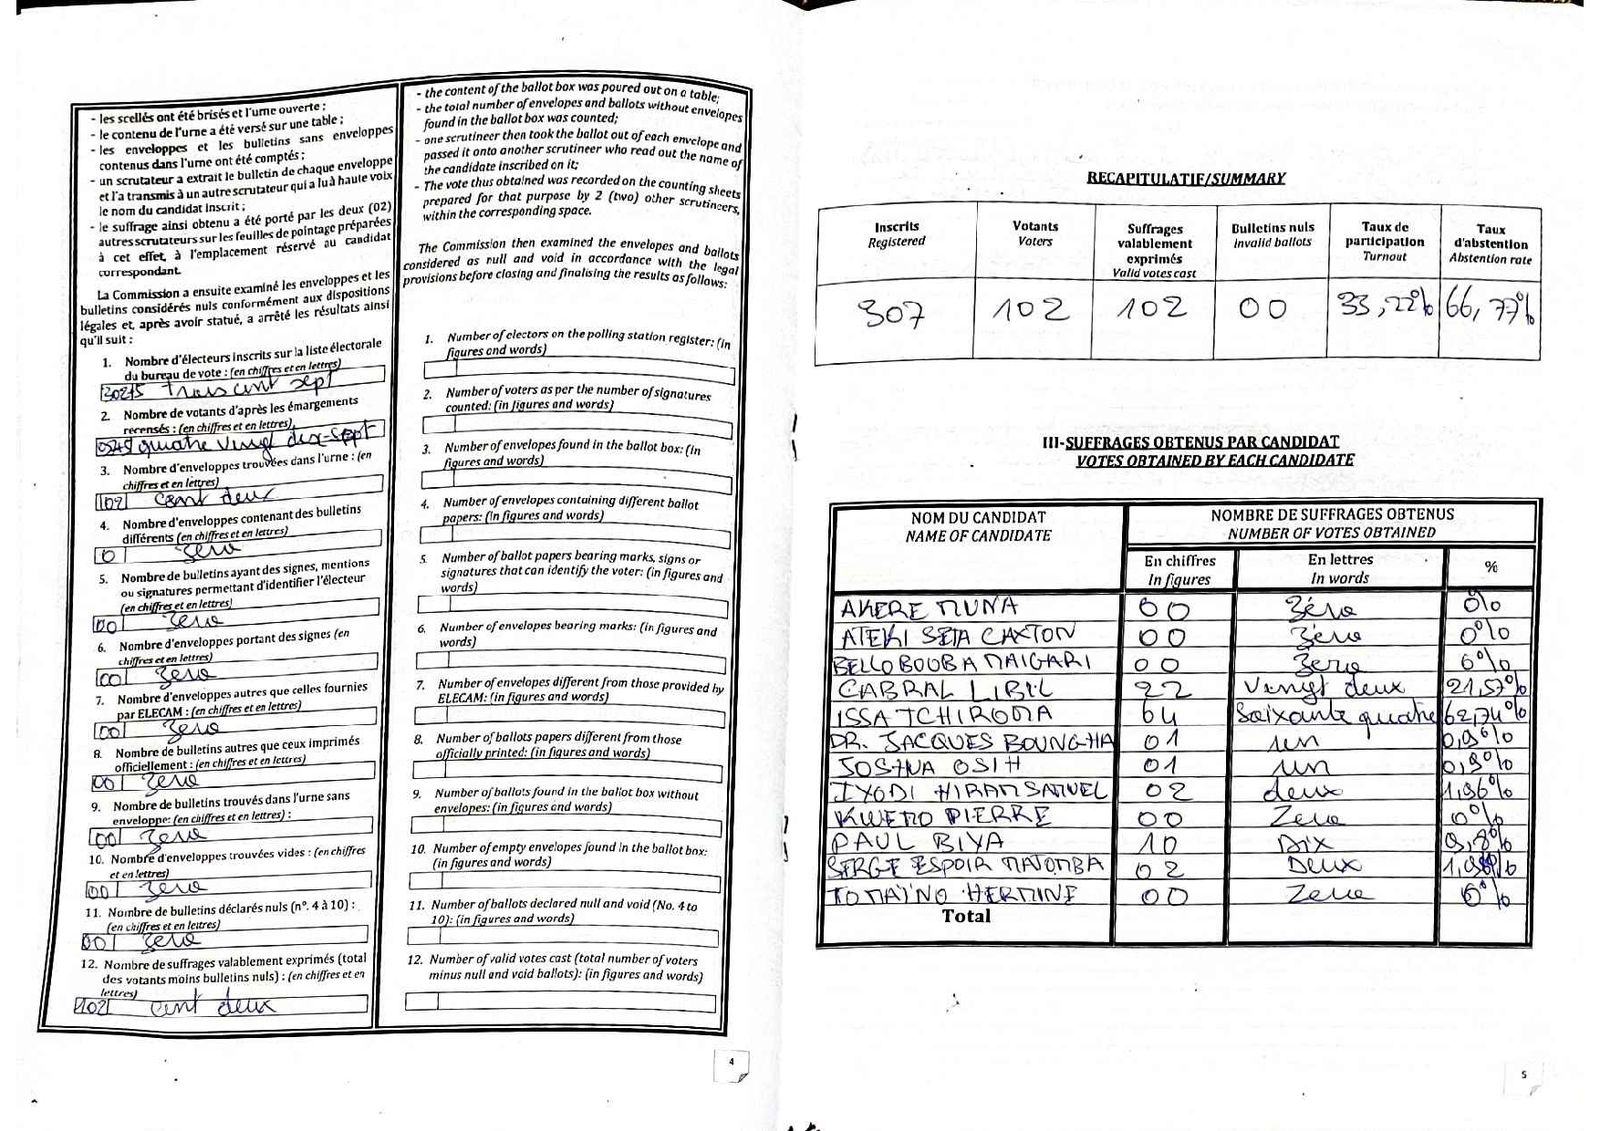 - les scellés ont été brisés et l'urne ouverte ;
- le contenu de l'urne a été versé sur une table ;
- les enveloppes et les bulletins sans enveloppes
contenus dans l'urne ont été comptés ;
- un scrutateur a extrait le bulletin de chaque enveloppe
et l'a transmis à un autre scrutateur qui a lu à haute voix
le nom du candidat inscrit ;
- le suffrage ainsi obtenu a été porté par les deux (02)
autres scrutateurs sur les feuilles de pointage préparées
à cet effet, à l'emplacement réservé au candidat
correspondant.
La Commission a ensuite examiné les enveloppes et les
bulletins considérés nuls conformément aux dispositions
légales et, après avoir statué, a arrêté les résultats ainsi
qu'il suit :
1. Nombre d'électeurs inscrits sur la liste électorale
du bureau de vote : (en chiffres et en lettres)
trois cent sept
2. Nombre de votants d'après les émargements
recensés : (en chiffres et en lettres)
quatre vingt dix-sept
3. Nombre d'enveloppes trouvées dans l'urne : (en
chiffres et en lettres)
102 cent deux
4. Nombre d'enveloppes contenant des bulletins
différents (en chiffres et en lettres)
0 zero
5. Nombre de bulletins ayant des signes, mentions
ou signatures permettant d'identifier l'électeur
(en chiffres et en lettres)
00 zero
6. Nombre d'enveloppes portant des signes (en
chiffres et en lettres)
00 zero
7. Nombre d'enveloppes autres que celles fournies
par ELECAM : (en chiffres et en lettres)
00 zero
8. Nombre de bulletins autres que ceux imprimés
officiellement : (en chiffres et en lettres)
00 zero
9. Nombre de bulletins trouvés dans l'urne sans
enveloppe: (en chiffres et en lettres) :
00 zero
10. Nombre d'enveloppes trouvées vides : (en chiffres
et en lettres)
00 zero
11. Nombre de bulletins déclarés nuls (n°. 4 à 10) :
(en chiffres et en lettres)
00 zero
12. Nombre de suffrages valablement exprimés (total
des votants moins bulletins nuls) : (en chiffres et en
lettres)
102 cent deux
- the content of the ballot box was poured out on a table;
- the total number of envelopes and ballots without envelopes
found in the ballot box was counted;
- one scrutineer then took the ballot out of each envelope and
passed it onto another scrutineer who read out the name of
the candidate inscribed on it;
- The vote thus obtained was recorded on the counting sheets
prepared for that purpose by 2 (two) other scrutineers,
within the corresponding space.
The Commission then examined the envelopes and ballots
considered as null and void in accordance with the legal
provisions before closing and finalising the results as follows:
1. Number of electors on the polling station register: (in
figures and words)
2. Number of voters as per the number of signatures
counted: (in figures and words)
3. Number of envelopes found in the ballot box: (in
figures and words)
4. Number of envelopes containing different ballot
papers: (in figures and words)
5. Number of ballot papers bearing marks, signs or
signatures that can identify the voter: (in figures and
words)
6. Number of envelopes bearing marks: (in figures and
words)
7. Number of envelopes different from those provided by
ELECAM: (in figures and words)
8. Number of ballots papers different from those
officially printed: (in figures and words)
9. Number of ballots found in the ballot box without
envelopes: (in figures and words)
10. Number of empty envelopes found in the ballot box:
(in figures and words)
11. Number of ballots declared null and void (No. 4 to
10): (in figures and words)
12. Number of valid votes cast (total number of voters
minus null and void ballots): (in figures and words)
4
RECAPITULATIF/SUMMARY
Inscrits Registered
Votants Voters
Suffrages valablement exprimés Valid votes cast
Bulletins nuls Invalid ballots
Taux de participation Turnout
Taux d'abstention Abstention rate
307 102 102 00 33,22% 66,77%
III-SUFFRAGES OBTENUS PAR CANDIDAT
VOTES OBTAINED BY EACH CANDIDATE
NOM DU CANDIDAT NOMBRE DE SUFFRAGES OBTENUS
NAME OF CANDIDATE NUMBER OF VOTES OBTAINED
En chiffres En lettres %
In figures In words
AKERE MUNA 00 Zéro 0%
ATEKI SETA CAXTON 00 Zéro 0%
BELLO BOUBA MAIGARI 00 Zero 0%
CABRAL LIBII 22 Vingt deux 21,57%
ISSA TCHIROMA 64 Soixante quatre 62,74%
DR. JACQUES BOUNGHA 01 un 0,9%
JOSHUA OSIH 01 un 0,9%
IYODI HIRAM SAMUEL 02 deux 1,96%
KWEMO PIERRE 00 Zero 0%
PAUL BIYA 10 Dix 9,8%
SERGE ESPOIR MATOMBA 02 Deux
TOMAÏNO HERMINE 00 Zero 0%
Total
5